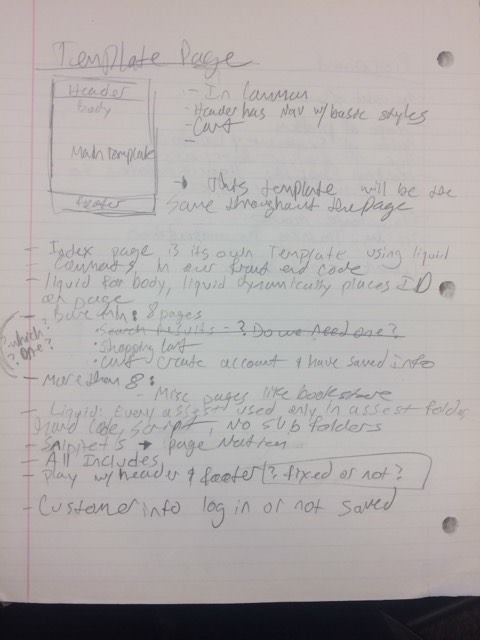 Template Page
Header
body
Main Template
footer
- In common
- Header has Nav w/ basic styles
- Cart
-
→ This template will be the
same throughout the page
- Index page is its own Template using liquid
- Comments, in our front end code
- liquid for body, liquid dynamically places ID
on page
- Bare min: 8 pages
• Search Results - ? Do we need one?
• Shopping Cart
• Cust create account & have saved info
? which ?
? one ?
- More than 8:
- Misc pages like bookstore
- Liquid: Every assest used only in assest folder,
Hard Code, Script, NO SUB folders
- Snippets → page Nation
- All Includes
- play w/ header & footer ? fixed or not?
- Customer info log in or not saved